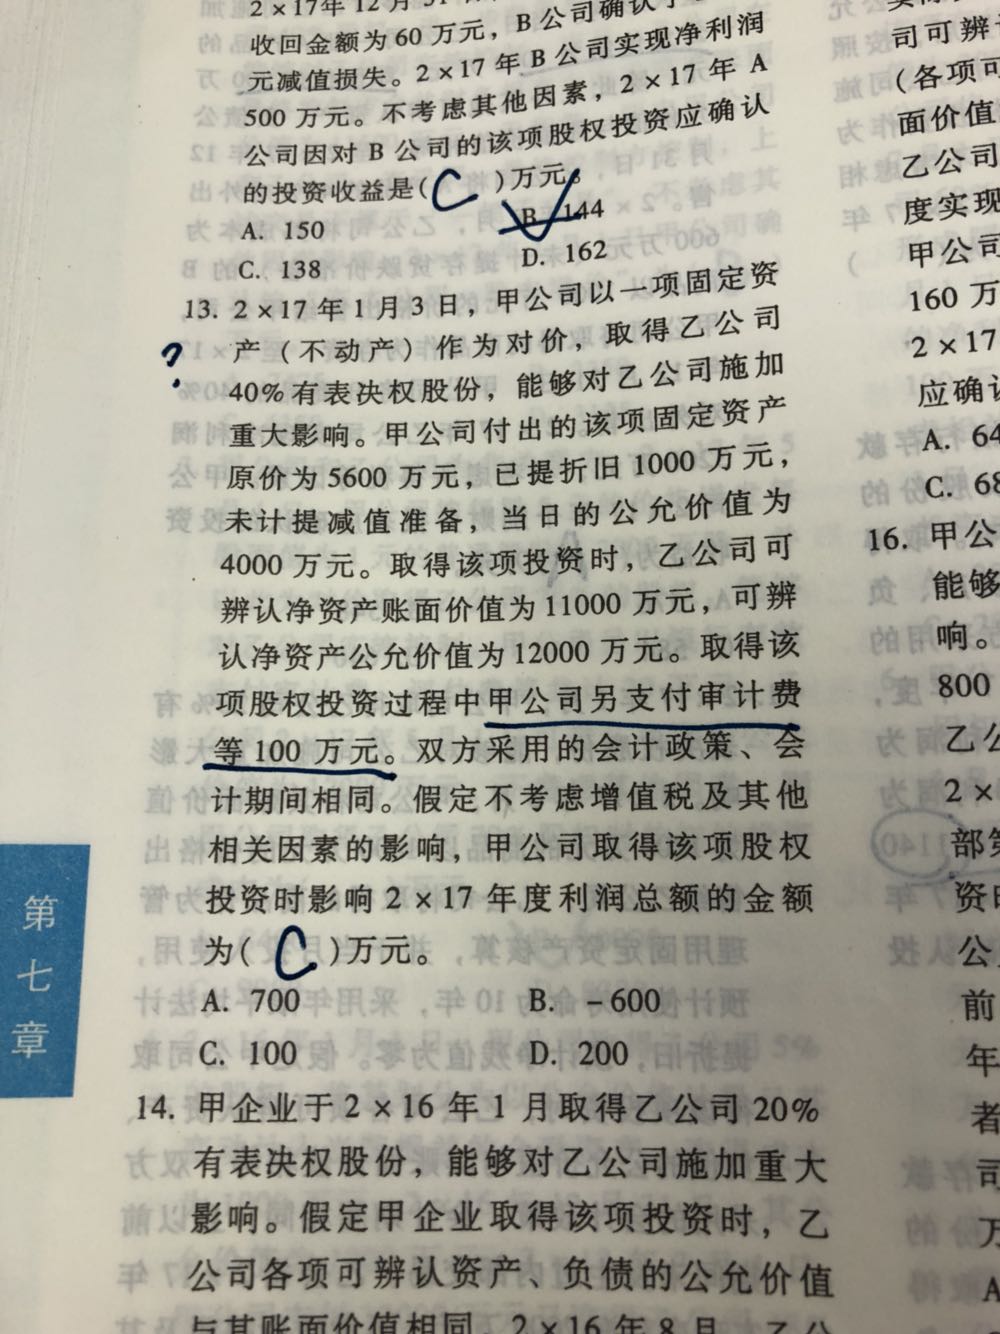 2×17年12月31日
收回金额为60万元，B公司确认了
元减值损失。2×17年B公司实现净利润
500万元。不考虑其他因素，2×17年A
公司因对B公司的该项股权投资应确认
的投资收益是( C )万元。
A. 150 B. 144
C. 138 D. 162
13. 2×17年1月3日，甲公司以一项固定资
? 产（不动产）作为对价，取得乙公司
40%有表决权股份，能够对乙公司施加
重大影响。甲公司付出的该项固定资产
原价为5600万元，已提折旧1000万元，
未计提减值准备，当日的公允价值为
4000万元。取得该项投资时，乙公司可
辨认净资产账面价值为11000万元，可辨
认净资产公允价值为12000万元。取得该
项股权投资过程中甲公司另支付审计费
等100万元。双方采用的会计政策、会
计期间相同。假定不考虑增值税及其他
相关因素的影响，甲公司取得该项股权
投资时影响2×17年度利润总额的金额
为( C )万元。
A. 700 B. -600
C. 100 D. 200
14. 甲企业于2×16年1月取得乙公司20%
有表决权股份，能够对乙公司施加重大
影响。假定甲企业取得该项投资时，乙
公司各项可辨认资产、负债的公允价值
与其账面价值相同。2×16年8月，乙公
第七章
司可辨认
(各项可
面价值
乙公司
度实现
甲公司
160万
2×17
应确认
A. 64
C. 68
16. 甲公
能够
响。
800
乙公
2×
部第
资时
公
前
年
者
司
万
A